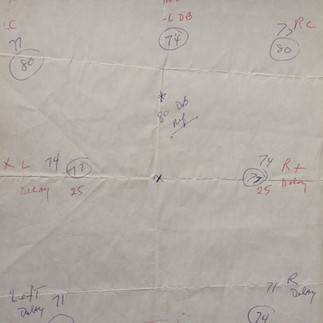 -6 DB
.C
77
80
74
77 RC
80
*
80 DB
Ref
x
X L 74 77
Delay 25
74 R X
25 Delay
Left 71
Delay
71 R
Delay
74